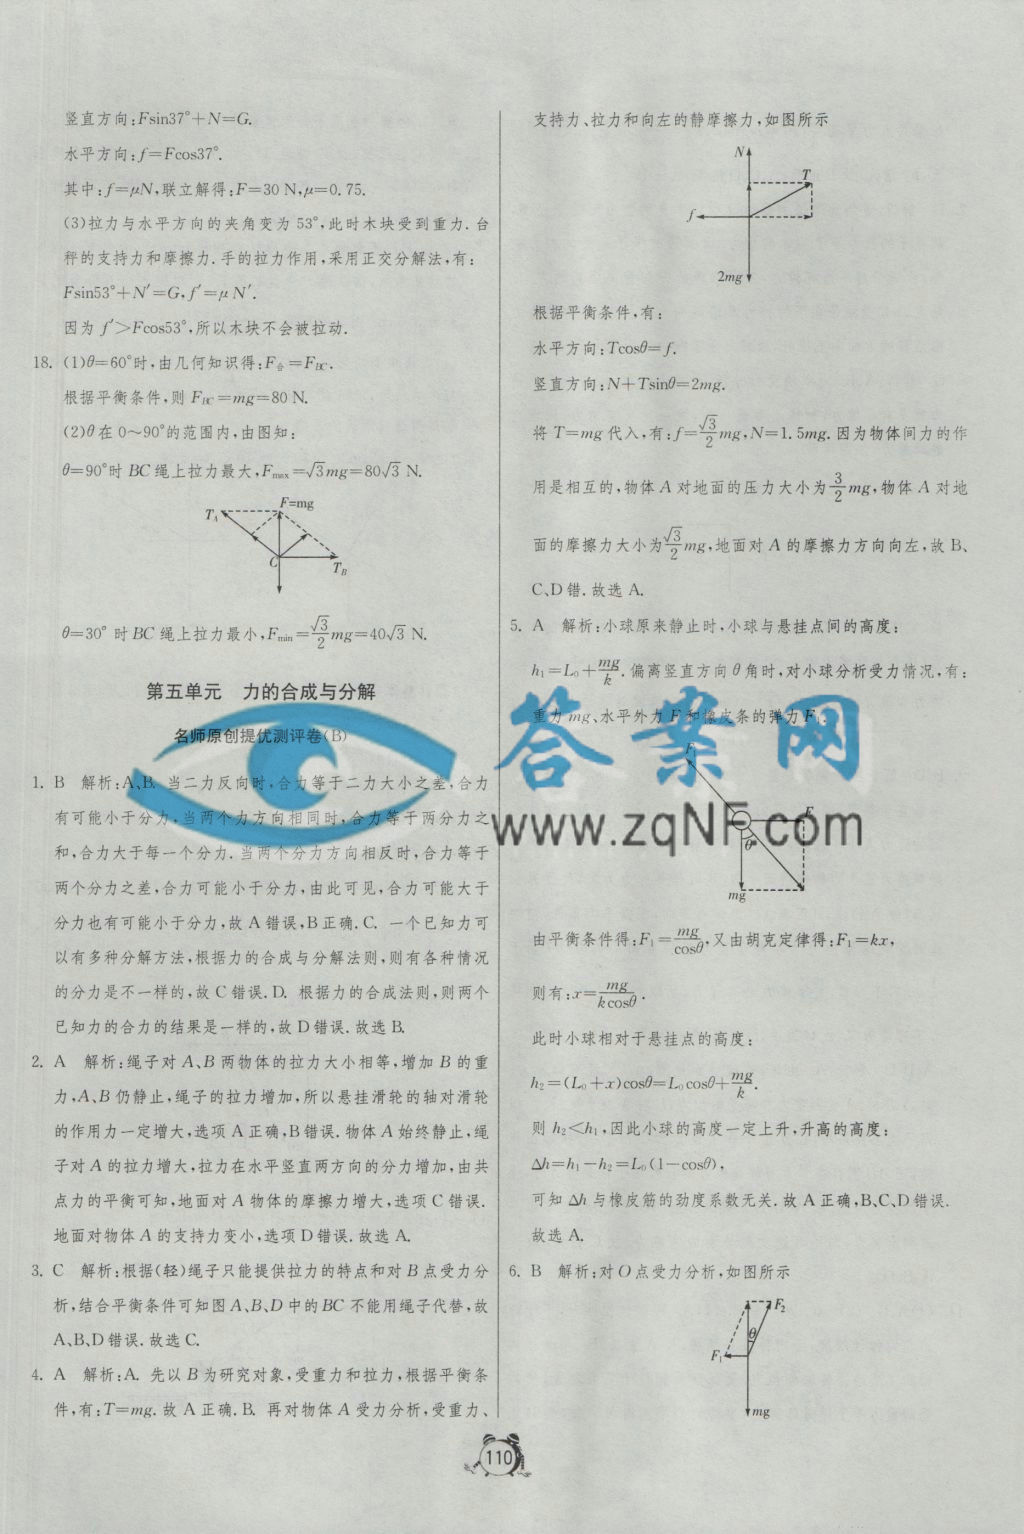 竖直方向:Fsin37°+N=G.
水平方向:f=Fcos37°.
其中:f=μN,联立解得:F=30 N,μ=0.75.
(3)拉力与水平方向的夹角变为 53°,此时木块受到重力. 台
秤的支持力和摩擦力. 手的拉力作用,采用正交分解法,有:
Fsin53°+N′=G,f′=μ N′.
因为 f′>Fcos53°,所以木块不会被拉动.
18. (1)θ=60°时,由几何知识得:F合=FBC.
根据平衡条件,则 FBC=mg=80 N.
(2)θ在 0~90°的范围内,由图知:
θ=90°时 BC 绳上拉力最大,Fmax=√3mg=80√3 N.
F=mg
TA
C
TB
θ=30° 时 BC 绳上拉力最小,Fmin=√3/2 mg=40√3 N.
第五单元 力的合成与分解
名师原创提优测评卷(B)
1. B 解析:A、B. 当二力反向时,合力等于二力大小之差,合力
有可能小于分力,当两个力方向相同时,合力等于两分力之
和,合力大于每一个分力. 当两个分力方向相反时,合力等于
两个分力之差,合力可能小于分力,由此可见,合力可能大于
分力也有可能小于分力,故 A 错误,B 正确. C. 一个已知力可
以有多种分解方法,根据力的合成与分解法则,则有各种情况
的分力是不一样的,故 C 错误. D. 根据力的合成法则,则两个
已知力的合力的结果是一样的,故 D 错误. 故选 B.
2. A 解析:绳子对 A、B 两物体的拉力大小相等,增加 B 的重
力,A、B 仍静止,绳子的拉力增加,所以悬挂滑轮的轴对滑轮
的作用力一定增大,选项 A 正确,B 错误. 物体 A 始终静止,绳
子对 A 的拉力增大,拉力在水平竖直两方向的分力增加,由共
点力的平衡可知,地面对 A 物体的摩擦力增大,选项 C 错误.
地面对物体 A 的支持力变小,选项 D 错误. 故选 A.
3. C 解析:根据(轻)绳子只能提供拉力的特点和对 B 点受力分
析,结合平衡条件可知图 A、B、D 中的 BC 不能用绳子代替,故
A、B、D 错误. 故选 C.
4. A 解析:A. 先以 B 为研究对象,受重力和拉力,根据平衡条
件,有:T=mg. 故 A 正确. B. 再对物体 A 受力分析,受重力、
支持力、拉力和向左的静摩擦力,如图所示
N
T
f
2mg
根据平衡条件,有:
水平方向:Tcosθ=f.
竖直方向:N+Tsinθ=2mg.
将 T=mg 代入,有:f=√3/2 mg,N=1.5mg. 因为物体间力的作
用是相互的,物体 A 对地面的压力大小为3/2 mg,物体 A 对地
面的摩擦力大小为√3/2 mg,地面对 A 的摩擦力方向向左,故 B、
C、D 错. 故选 A.
5. A 解析:小球原来静止时,小球与悬挂点间的高度:
h1=L0+mg/k. 偏离竖直方向 θ 角时,对小球分析受力情况,有:
重力 mg、水平外力 F 和橡皮条的弹力 F1.
F1
F
θ
mg
由平衡条件得:F1=mg/cosθ,又由胡克定律得:F1=kx,
则有:x=mg/kcosθ.
此时小球相对于悬挂点的高度:
h2=(L0+x)cosθ=L0cosθ+mg/k.
则 h2<h1,因此小球的高度一定上升,升高的高度:
Δh=h1−h2=L0(1−cosθ),
可知 Δh 与橡皮筋的劲度系数无关. 故 A 正确,B、C、D 错误.
故选 A.
6. B 解析:对 O 点受力分析,如图所示
F2
θ
F1
mg
110
答案网
www.zqNF.com